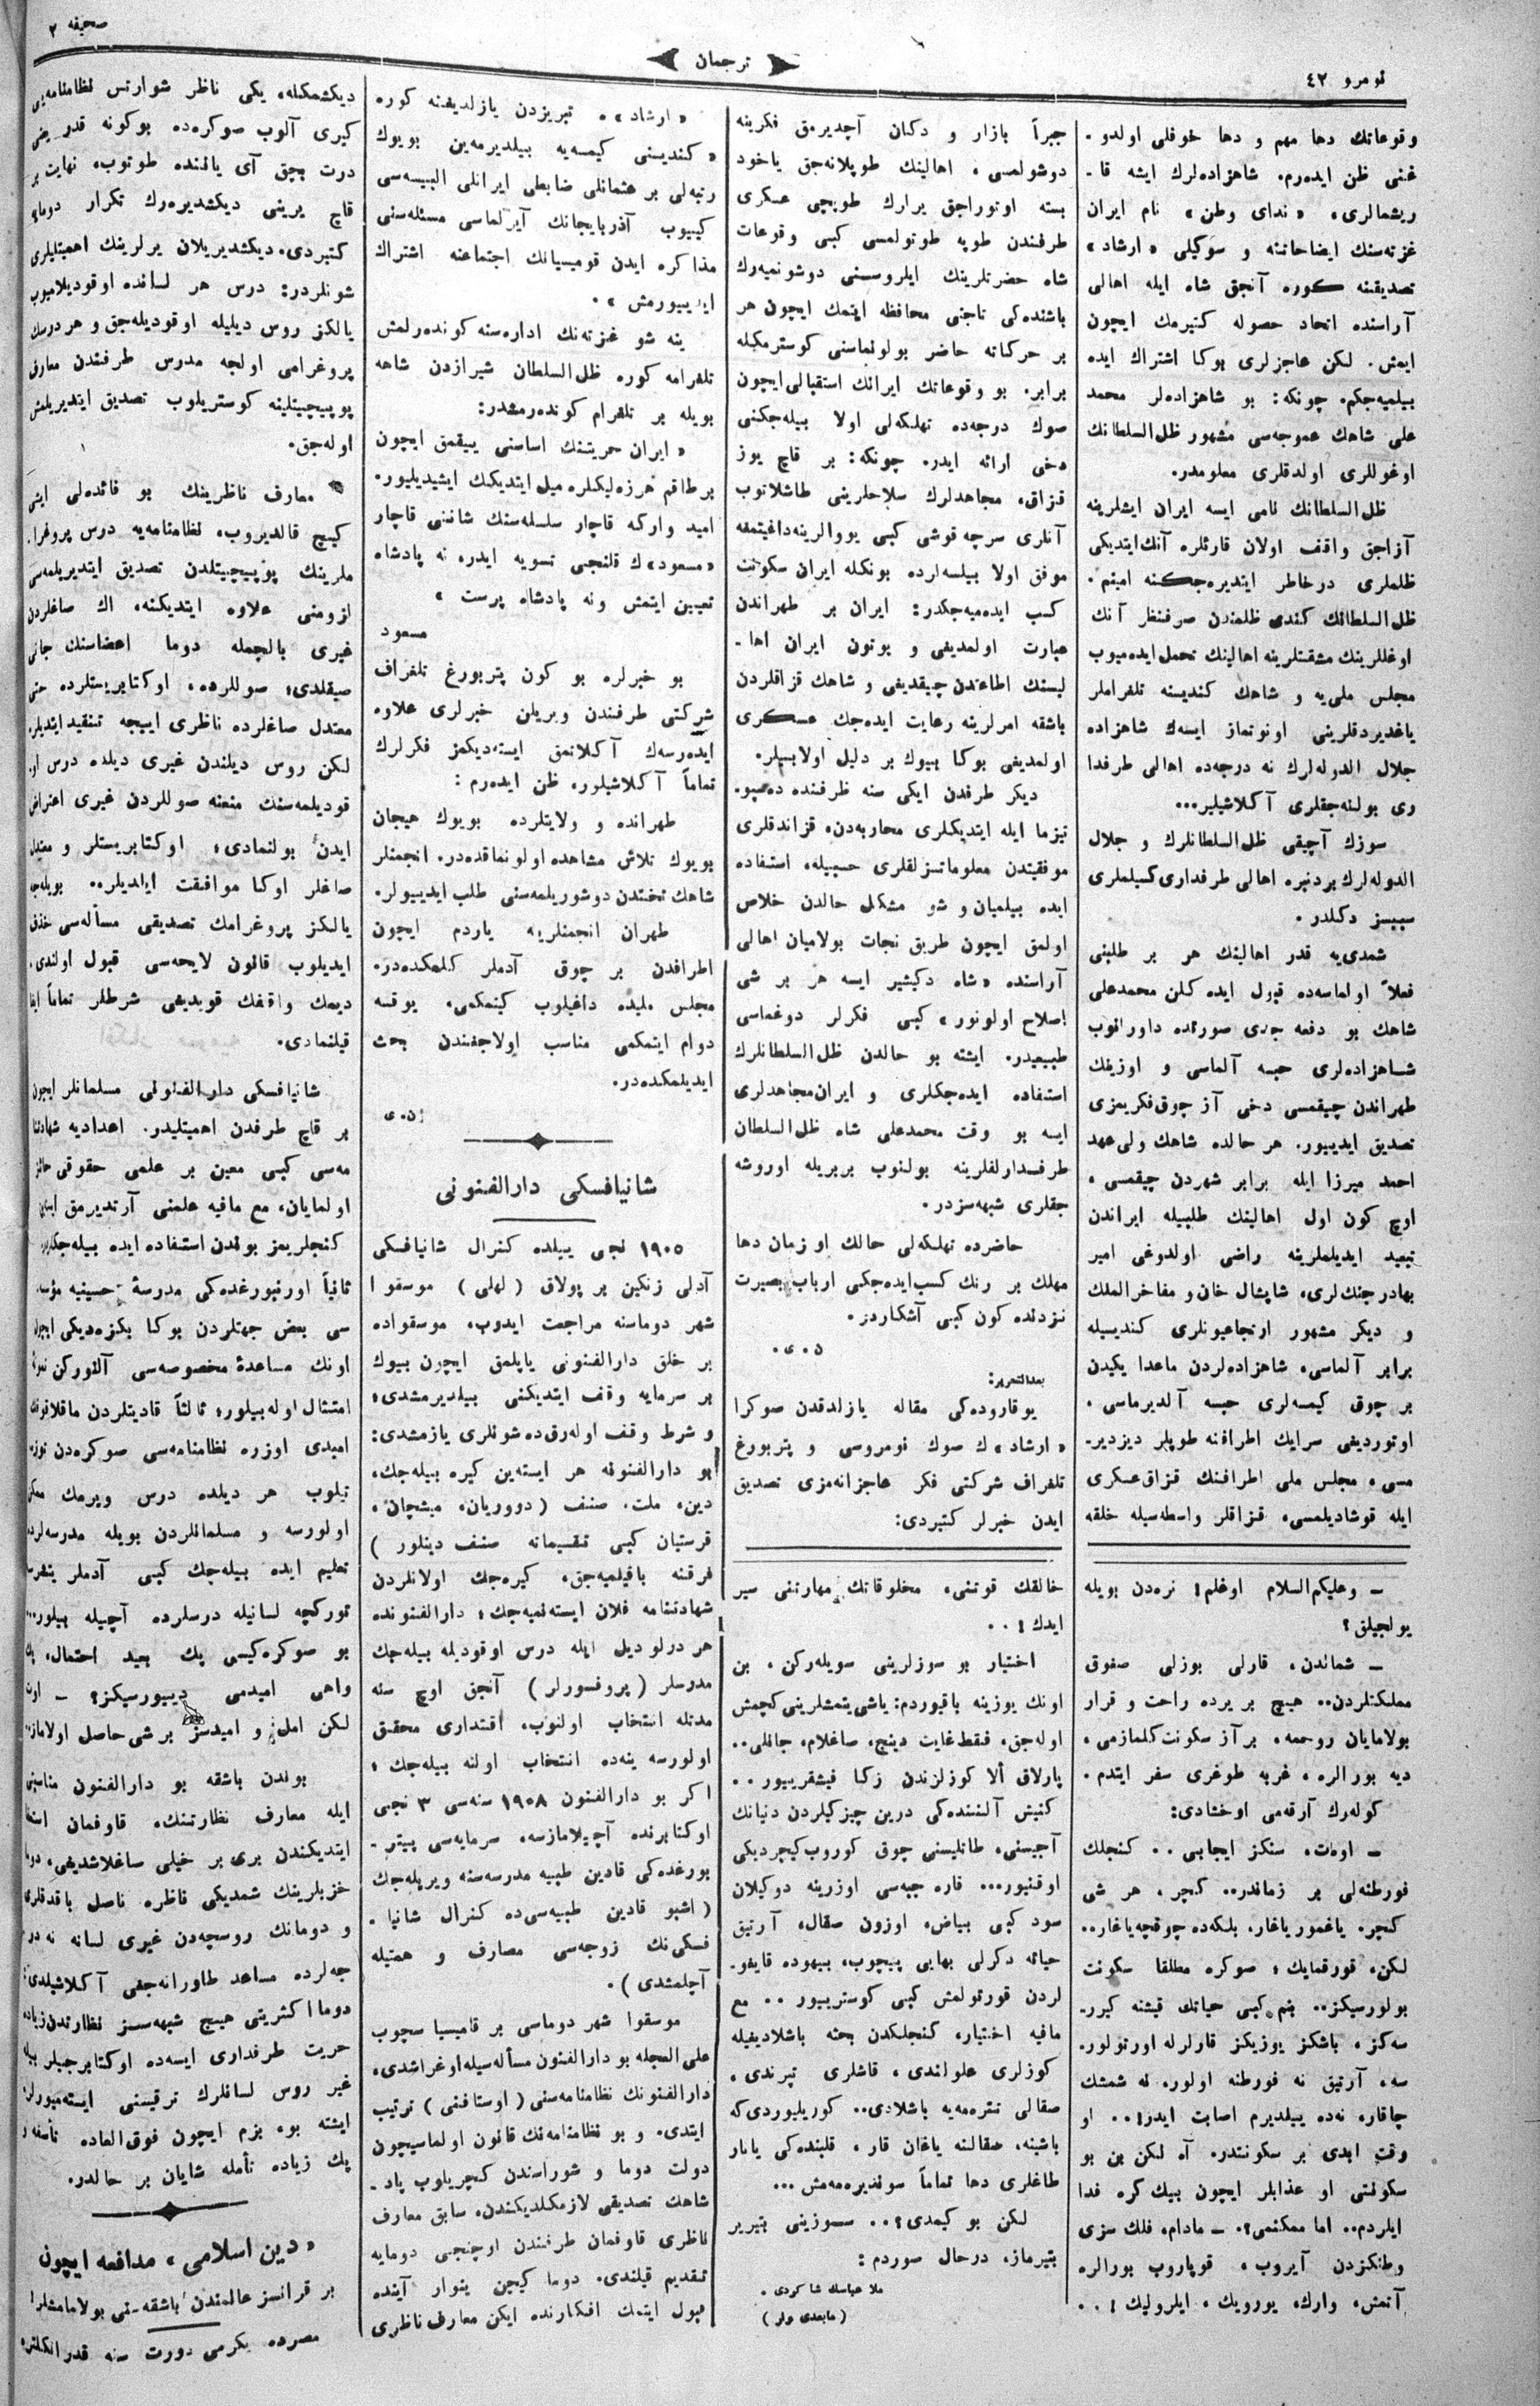 نومرو ٤٢
ترجمان
صحیفه ٢
وقوعاتك دها مهم و دها خوفلی اولدو ـ
غنی ظن ایدەرم. شاهزادەلرك ایشه قا ـ
ریشمالری، «ندای وطن» نام ایران
غزته‌سنك ایضاحاتنه و سوكیلی «ارشاد»
تصدیقنه كوره آنجق شاه ایله اهالی
آراسنده اتحاد حصوله كتیرمك ایچون
ایمش. لكن عاجزلری بوكا اشتراك ایده
بیلمیه‌جكم. چونكه: بو شاهزادەلر محمد
علی شاهك عموجه‌سی مشهور ظل السلطانك
اوغوللری اولدقلری معلومدر.
ظل السلطانك نامی ایسه ایران ایشلرینه
آزاجق واقف اولان قارئلره آنك ایتدیكی
ظلملری درخاطر ایتدیره‌جكنه امینم.
ظل السلطانك كندی ظلمندن صرفنظر آنك
اوغللرینك مشقتلرینه اهالینك تحمل ایده‌میوب
مجلس ملی‌یه و شاهك كندیسنه تلغراملر
یاغدیردقلرینی اونوتماز ایسه‌ك شاهزاده
جلال الدوله‌لرك نه درجه‌ده اهالی طرفدا
ری بولنه‌جقلری آكلاشیلیر...
سوزك آچیقی ظل السلطانلرك و جلال
الدوله‌لرك بردنبره اهالی طرفداری كسیلملری
سببسز دكلدر.
شمدی‌یه قدر اهالینك هر بر طلبنی
فعلاً اولماسه‌ده قبول ایده كلن محمدعلی
شاهك بو دفعه جدی صورتده داورانوب
شاهزاده‌لری حبسه آلماسی و اوزینك
طهراندن چیقمسی دخی آز چوق فكریمزی
تصدیق ایدییور. هر حالده شاهك ولی عهد
احمد میرزا ایله برابر شهردن چیقمسی،
اوچ كون اول اهالینك طلبیله ایراندن
تبعید ایدیلملرینه راضی اولدوغی امیر
بهادر جنك‌لری، شاپشال خان و مفاخر الملك
و دیكر مشهور ارتجاعیونلری كندیسیله
برابر آلماسی، شاهزاده‌لردن ماعدا یكیدن
بر چوق كیمسه‌لری حبسه آلدیرماسی،
اوتوردیغی سرایك اطرافنه طوپلر دیزدیرـ
مسی، مجلس ملی اطرافنك قزاق عسكری
ایله قوشادیلمسی، قزاقلر واسطه‌سیله خلقه
جبراً بازار و دكان آچدیرمق فكرینه
دوشولمسی، اهالینك طوپلانه‌جق یاخود
بسته اوتوراجق یرلرك طوپجی عسكری
طرفندن طوپه طوتولمسی كبی وقوعات
شاه حضرتلرینك ایلروسنی دوشونمیه‌رك
باشنده‌كی تاجنی محافظه ایتمك ایچون هر
بر حركاته حاضر بولونماسنی كوسترمكله
برابر، بو وقوعاتك ایرانك استقبالی ایچون
صوك درجه‌ده تهلكه‌لی اولا بیله‌جكنی
دخی ارائه ایدر. چونكه: بر قاچ یوز
قزاق، مجاهدلرك سلاحلرینی طاشلاتوب
آنلری سرچه قوشی كبی یووالرینه داغیتمغه
موفق اولا بیلسه‌لرده بونكله ایران سكونت
كسب ایده‌میه‌جكدر: ایران بر طهراندن
عبارت اولمدیغی و بوتون ایران اها ـ
لیسنك اطاعتدن چیقدیغی و شاهك قزاقلردن
باشقه امرلرینه رعایت ایده‌جك عسكری
اولمدیغی بوكا بیوك بر دلیل اولا بیلر.
دیكر طرفدن ایكی سنه ظرفنده ده‌سپو.
تیزما ایله ایتدیكلری محاربه‌دن، قزاندقلری
موفقیتدن معلوماتسزلقلری حسبیله، استفاده
ایده بیلمیان و شو مشكل حالدن خلاص
اولمق ایچون طریق نجات بولامیان اهالی
آراسنده «شاه دكیشیر ایسه هر بر شی
اصلاح اولونور» كبی فكرلر دوغماسی
طبیعیدر. ایشته بو حالدن ظل السلطانلرك
استفاده ایده‌جكلری و ایران مجاهدلری
ایسه بو وقت محمدعلی شاه ظل السلطان
طرفدارلقلرینه بولنوب بربریله اوروشه
جقلری شبهه‌سزدر.
حاضرده تهلكه‌لی حالك او زمان دها
مهلك بر رنك كسب ایده‌جكی ارباب بصیرت
نزدنده كون كبی آشكاردر.
ن. ی.
بعدالتحریر:
یوقاروده‌كی مقاله یازلدقدن صوكرا
«ارشاد»ك صوك نومروسی و پتربورغ
تلغراف شركتی فكر عاجزانه‌مزی تصدیق
ایدن خبرلر كتیردی:
«ارشاد»ه تبریزدن یازلدیغنه كوره
«كندیسنی كیمسه‌یه بیلدیرمه‌ین بویوك
رتبه‌لی بر عثمانلی ضابطی ایرانلی البیسه‌سی
كییوب آذربایجانك آیرلماسی مسئله‌سنی
مذاكره ایدن قومیسیانك اجتماعنه اشتراك
ایدییورمش».
ینه شو غزته‌نك اداره‌سنه كوندەرلمش
تلغرامه كوره ظل السلطان شیرازدن شاهه
بویله بر تلغرام كوندەرمشدر:
«ایران حریتنك اساسنی ییقمق ایچون
برطاقم هرزه‌لیكلره میل ایتدیكك ایشیدیلیور.
امید واركه قاچار سلسله‌سنك شاننی قاچار
«مسعود»ك قلنجی تسویه ایدر، نه پادشاه
تعیین ایتمش ونه پادشاه پرست»
مسعود
بو خبرلره بو كون پتربورغ تلغراف
شركتی طرفندن ویریلن خبرلری علاوه
ایده‌رسه‌ك آكلاتمق ایسته‌دیكمز فكرلرك
تماماً آكلاشیلور، ظن ایدەرم:
طهرانده و ولایتلرده بویوك هیجان
بویوك تلاش مشاهده اولونماقده‌در. انجمنلر
شاهك تختدن دوشوریلمه‌سنی طلب ایدییولر.
طهران انجمنلرینه یاردم ایچون
اطرافدن بر چوق آدملر كلمكده‌در.
مجلس ملیده داغیلوب كیتمكمی، یوقسه
دوام ایتمكمی مناسب اولاجغندن بحث
ایدیلمكده‌در.
ن. ی
شانیافسكی دارالفنونی
١٩٠٥ نجی ییلده كنرال شانیافسكی
آدلی زنكین بر پولاق (لهلی) موسقوا
شهر دوماسنه مراجعت ایدوب، موسقواده
بر خلق دارالفنونی یاپلمق ایچون بیوك
بر سرمایه وقف ایتدیكنی بیلدیرمشدی؛
و شرط وقف اوله‌رق‌ده شونلری یازمشدی:
بو دارالفنونه هر ایسته‌ین كیره بیله‌جك،
دین، ملت، صنف (دووریان، میشچان،
قرستیان كبی تقسیماته صنف دینلور)
فرقنه باقیلمیه‌جق، كیره‌جك اولانلردن
شهادتنامه فلان ایسته‌نمیه‌جك؛ دارالفنونده
هر درلو دیل ایله درس اوقودیله بیله‌جك
مدرسلر (پروفسورلر) آنجق اوچ سنه
مدتله انتخاب اولنوب، اقتداری محقق
اولورسه ینه‌ده انتخاب اولنه بیله‌جك؛
اكر بو دارالفنون ١٩٠٨ سنه‌سی ٣ نجی
اوكتابرنده آچیلامازسه، سرمایه‌سی پیترـ
بورغده‌كی قادین طبیه مدرسه‌سنه ویریله‌جك
(اشبو قادین طبیه‌سی‌ده كنرال شانیا ـ
فسكی‌نك زوجه‌سی مصارف و همتیله
آچلمشدی).
موسقوا شهر دوماسی بر قامیسیا سچوب
علی العجله بو دارالفنون مسأله‌سیله اوغراشدی،
دارالفنونك نظامنامه‌سنی (اوستافنی) ترتیب
ایتدی. و بو نظامنامه‌نك قانون اولماسیچون
دولت دوما و شوراسندن كچریلوب پاد ـ
شاهك تصدیقی لازمكلدیكندن، سابق معارف
ناظری قاوفمان طرفندن اوچنجی دومایه
تقدیم قیلندی. دوما كیچن ینوار آینده
قبول ایتمك افكارنده ایكن معارف ناظری
دیكشمكله، یكی ناظر شوارتس نظامنامه‌یی
كیری آلوب صوكره‌ده بوكونه قدر یعنی
درت بچق آی یاننده طوتوب، نهایت بر
قاچ یرینی دیكشدیره‌رك تكرار دومایه
كتیردی. دیكشدیریلان یرلرینك اهمیتلیلری
شونلردر: درس هر لسانده اوقودیلامیوب
یالكز روس دیلیله اوقودیله‌جق و هر درسك
پروغرامی اولجه مدرس طرفندن معارف
پوپیچیتلینه كوستریلوب تصدیق ایتدیریلمش
اوله‌جق.
معارف ناظرینك بو فائده‌لی ایشی
كیچ قالدیروب، نظامنامه‌یه درس پروغرا.
ملرینك پوپیچیتلدن تصدیق ایتدیریلمه‌سی
لزومنی علاوه ایتدیكنه، اك صاغلردن
غیری بالجمله دوما اعضاسنك جانی
صیقلدی؛ صوللرده، اوكتابریستلرده حتی
معتدل صاغلرده ناظری اییجه تنقید ایتدیلر.
لكن روس دیلندن غیری دیلده درس او.
قودیلمه‌سنك منعنه صوللردن غیری اعتراض
ایدن بولنمادی؛ اوكتابریستلر و معتدل
صاغلر اوكا موافقت ایلدیلر.. بویله‌جه
یالكز پروغرامك تصدیقی مسأله‌سی حذف
ایدیلوب قانون لایحه‌سی قبول اولندی.
دیمك واقفك قویدیغی شرطلر تماماً ایفا
قیلنمادی.
شانیافسكی دارالفنونی مسلمانلر ایچون
بر قاچ طرفدن اهمیتلیدر. اعدادیه شهادتنا
مه‌سی كبی معین بر علمی حقوقی حائز
اولمایان، مع مافیه علمنی آرتدیرمق ایستین
كنجلریمز بوندن استفاده ایده بیله‌جكلردر.
ثانیاً اورنبورغده‌كی مدرسۀ حسینیه مؤسه‌
سی بعض جهتلردن بوكا بكزه‌دیكی ایچون
اونك مساعدۀ مخصوصه‌سی آلنوركن نمونۀ
امتثال اوله‌بیلور؛ ثالثاً قادیتلردن ماقلاقوفك
امیدی اوزره نظامنامه‌سی صوكره‌دن توزه
تیلوب هر دیلده درس ویرمك ممكن
اولورسه و مسلمانلردن بویله مدرسه‌لرده
تعلیم ایده بیله‌جك كبی آدملر یتشرسه
توركچه لسانیله درسلرده آچیله بیلور...
بو صوكره‌كیسی پك بعید احتمال، پك
واهی امیدمی دییورسیكز؟ ـ اوت
لكن امل و امیدسز بر شی حاصل اولاماز..
بوندن باشقه بو دارالفنون مناسبتی
ایله معارف نظارتنك، قاوفمان استعفا
ایتدیكندن بری بر خیلی صاغلاشدیغی، دوما
حزبلرینك شمدیكی ناظره ناصل باقدقلری
و دومانك روسچه‌دن غیری لسانه نه در.
جه‌لرده مساعد طاورانه‌جغی آكلاشیلدی:
دوما اكثریتی هیچ شبهه‌سز نظارتدن زیاده
حریت طرفداری ایسه‌ده اوكتابرجیلر بیله
غیر روس لسانلرك ترقیسنی ایسته‌میورلر.
ایشته بو، بزم ایچون فوق العاده تأسفه و
پك زیاده تأمله شایان بر حالدر.
«دین اسلامی» مدافعه ایچون
بر فرانسز عالمندن باشقه‌سنی بولامامشلر!
مصرده یكرمی دورت سنه قدر انكلتره
ـ وعلیكم السلام اوغلم! نره‌دن بویله
یولجیلق؟
ـ شمالدن، قارلی بوزلی صغوق
مملكتلردن.. هیچ بر یرده راحت و قرار
بولامایان روحمه، بر آز سكونت كلمازمی،
دیه بورالره، غربه طوغری سفر ایتدم.
كوله‌رك آرقه‌می اوخشادی:
ـ اوت، سنكز ایجابی.. كنجلك
فورطنه‌لی بر زماندر.. كچر، هر شی
كچر. یاغمور یاغار، بلكه‌ده چوقجه یاغار..
لكن، قورقمایك؛ صوكره مطلقا سكونت
بولورسیكز.. بنم كبی حیاتك قیشنه كیررـ
سه‌كز، باشكز یوزیكز قارلرله اورتولور.
سه، آرتیق نه فورطنه اولور، نه شمشك
چاقار، نه‌ده ییلدیرم اصابت ایدر!.. او
وقت ابدی بر سكونتدر. آه لكن بن بو
سكونتی او عذابلر ایچون بیك كره فدا
ایلردم.. اما ممكنمی؟. ـ مادام، فلك سزی
وطنكزدن آیروب، قوپاروب بورالره
آتمش، وارك، یورویك، ایلرولیك!..
خالقك قوتنی، مخلوقاتك مهارتنی سیر
ایدك!..
اختیار بو سوزلرینی سویله‌ركن، بن
اونك یوزینه باقیوردم: یاشی یتمشلرینی كچمش
اوله‌جق، فقط غایت دینج، صاغلام، جانلی..
پارلاق آلا كوزلرندن زكا فیشقرییور..
كنیش آلننده‌كی درین چیزكیلردن دنیانك
آجیسنی، طاتلیسنی چوق كوروب كیچردیكی
اوقنیور... قاره جبه‌سی اوزرینه دوكیلان
سود كبی بیاض، اوزون صقال، آرتیق
حیاته دكرلی بهایی بیچوب، بیهوده قایغو.
لردن قورتولمش كبی كوسترییور.. مع
مافیه اختیار، كنجلكدن بحثه باشلادیغیله
كوزلری علولندی، قاشلری تپرندی،
صقالی تتره‌مه‌یه باشلادی.. كوریلیوردی كه
باشینه، صقالنه یاغان قار، قلبنده‌كی یانار
طاغلری دها تماماً سوندیره‌مه‌مش...
لكن بو كیمدی؟.. سوزینی بتیریر
بتیرماز، درحال صوردم:
ملا عباسك شاكردی.
(مابعدی وار)